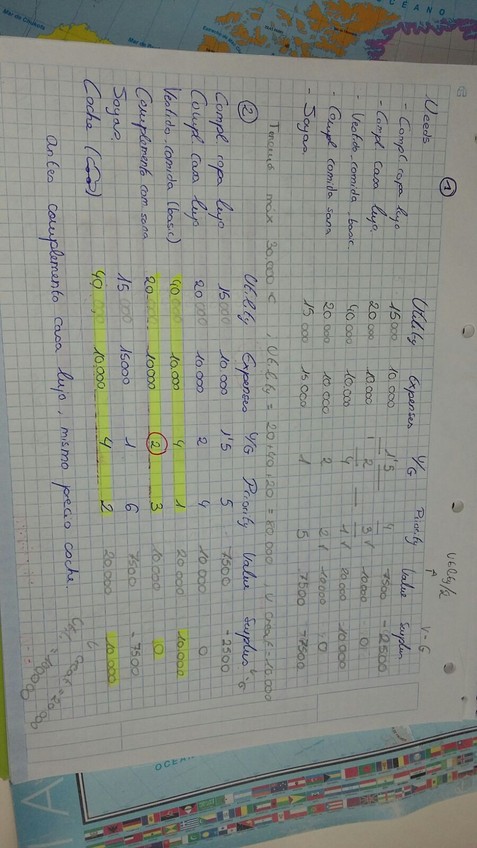 ①
Utility/2
V-G
Needs Utility Expenses U/G Priority Value Surplus
- Compl ropa lujo 15000 10.000 1'5 4 7500 -2500
- Compl casa lujo 20000 10.000 2 3 10.000 0
- Vestido comida basic. 40000 10.000 4 1 20000 10.000
- Compl comida sana 20000 10.000 2 2 10000 0
- Joyas 15000 15000 1 5 7500 -7500
max 30.000 €, Utility = 20+40+20 = 80.000, V. creat = 10.000
② Utility Expenses U/G Priority Value Surplus V-G
Compl ropa lujo 15000 10.000 1'5 5 7500 -2500
Compl. casa lujo 20000 10.000 2 4 10.000 0
Vestido comida (basic) 40000 10.000 4 1 20000 10.000
Complemento com sana 20000 10000 2 3 10.000 0
Joyas 15000 15000 1 6 7500 -7500
Coche 40.000 10.000 4 2 20.000 10.000
Antes complemento casa lujo, mismo precio coche.
OCEANO
OCEA